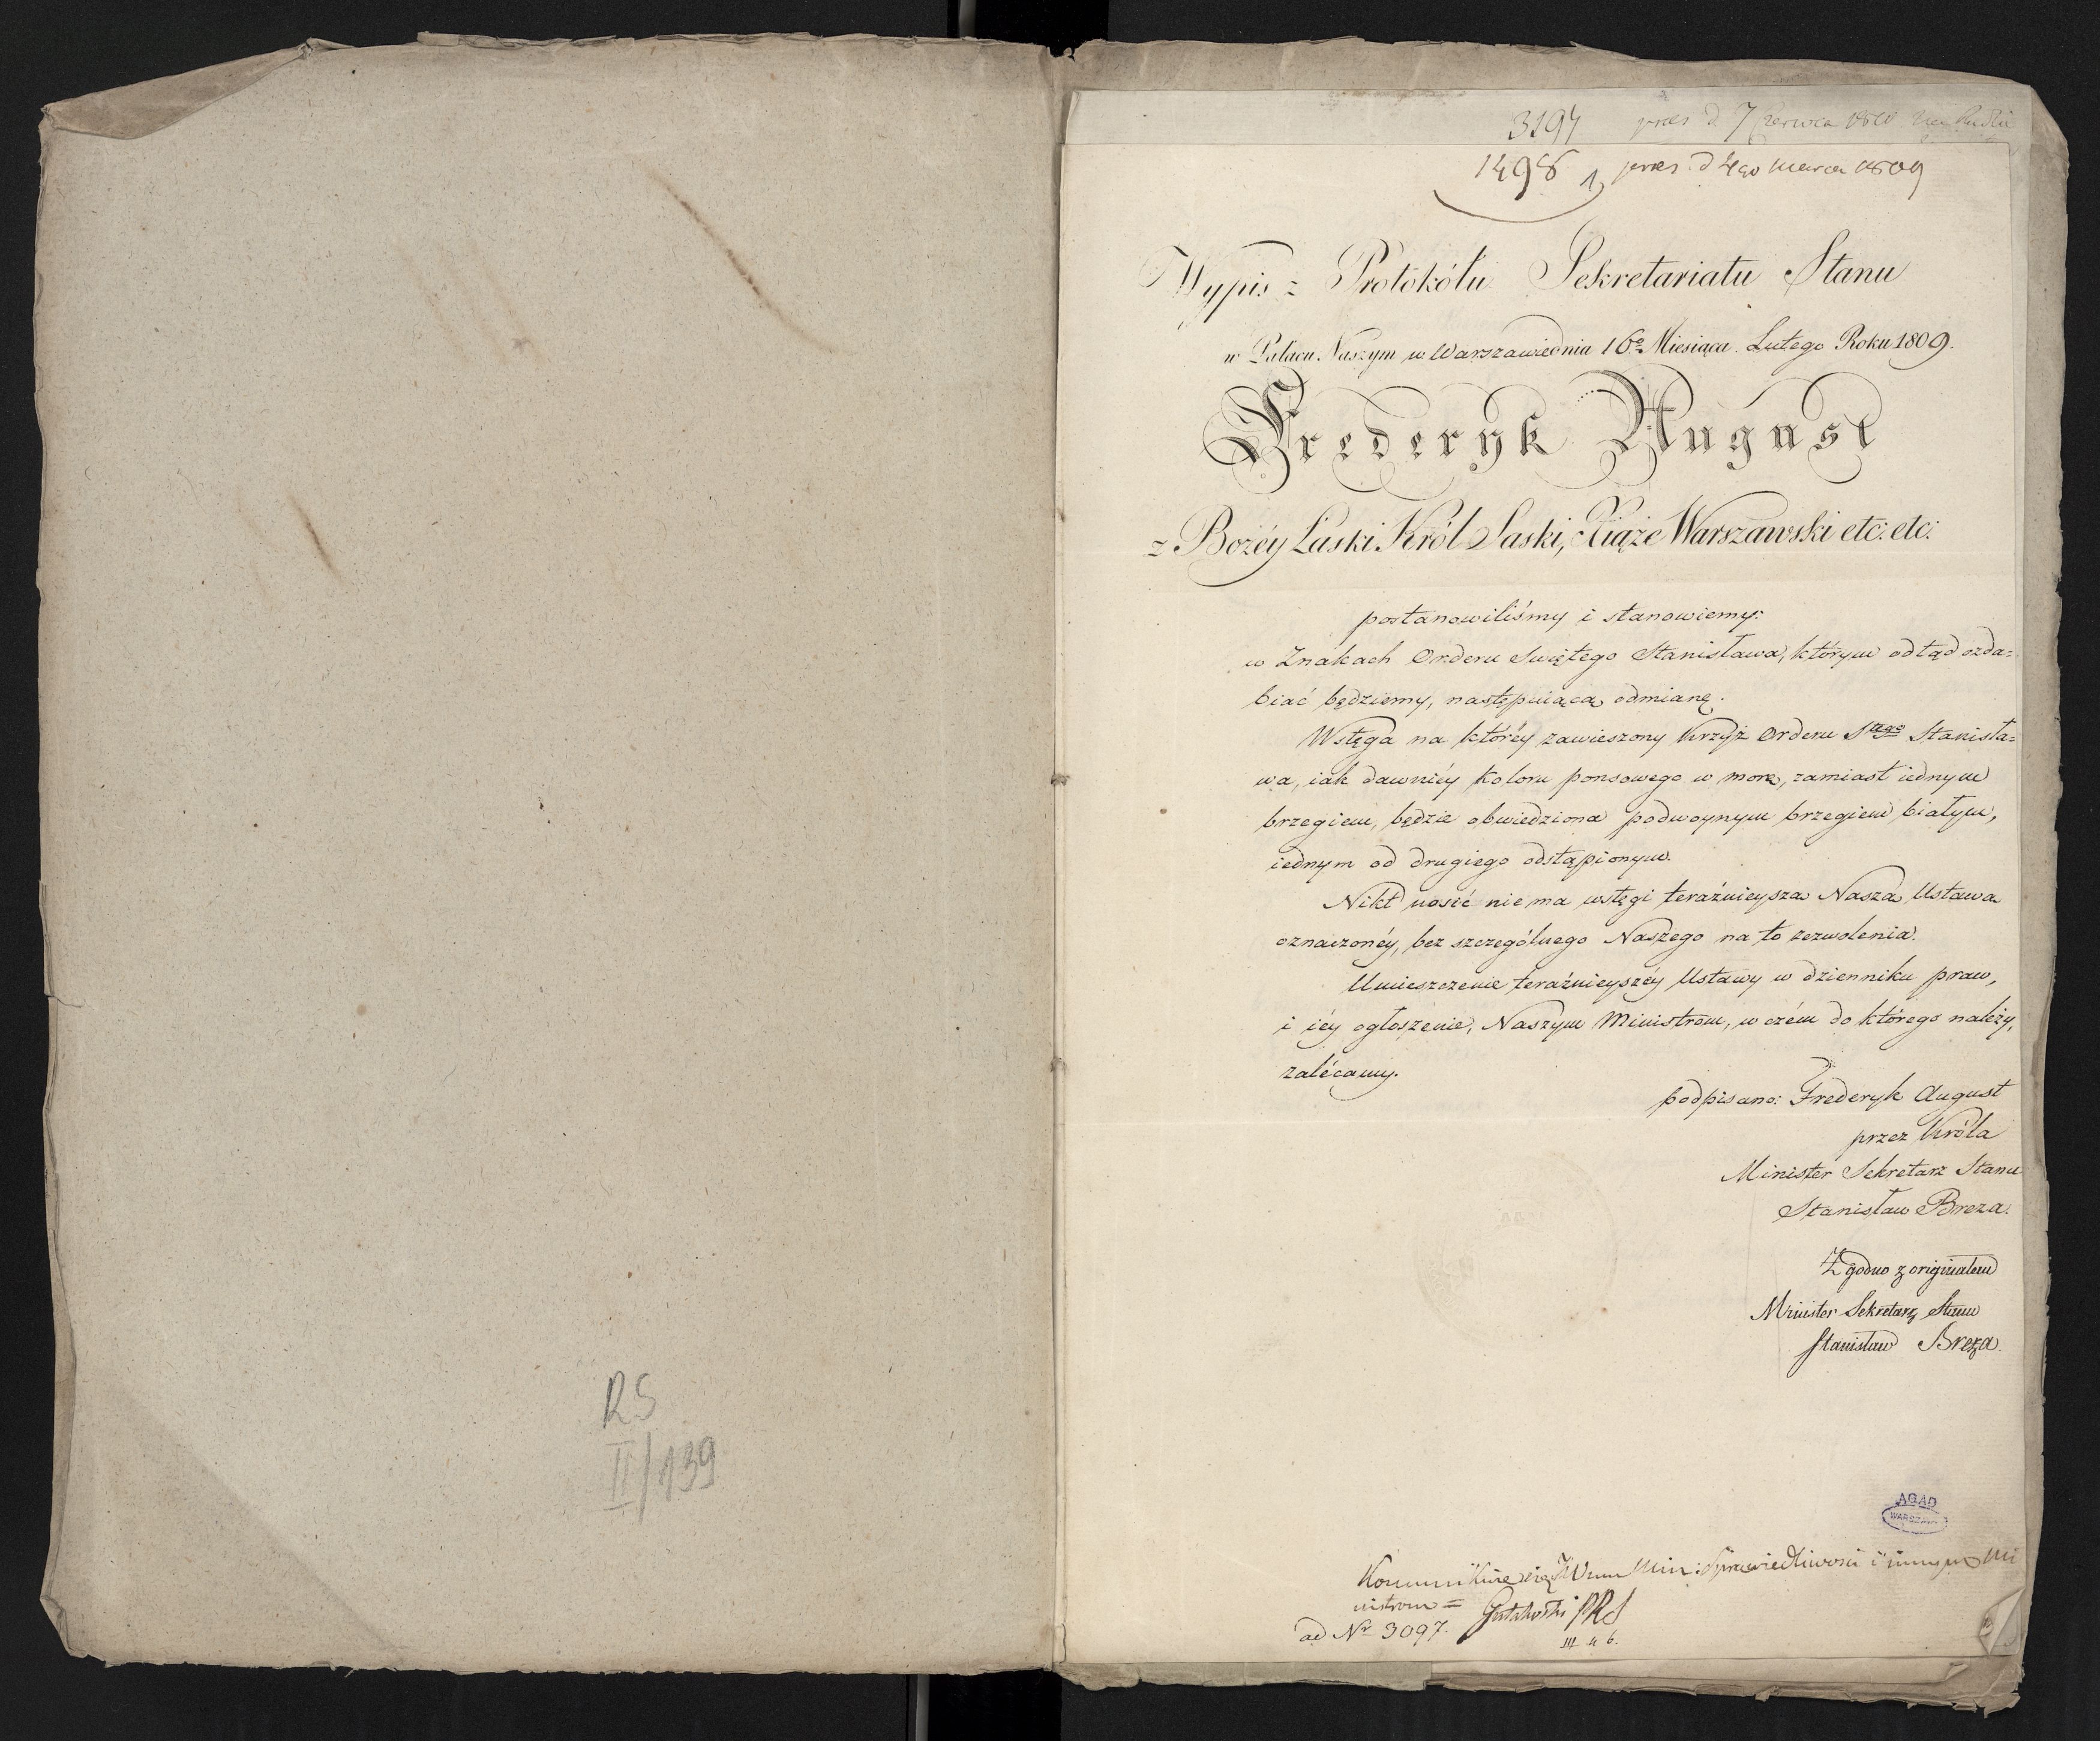 RS
II/139
3194 pres d 7 Czerwca 1810
1498 1, pres. d 4go Marca 1809
Wypis z Protokółu Sekretariatu Stanu
w Pałacu Naszym w Warszawie dnia 16o Miesiąca Lutego Roku 1809.
Frederyk August
z Bożéy Łaski Król Saski, Xiąże Warszawski etc: etc:
postanowiliśmy i stanowiemy:
w Znakach Orderu Swiętego Stanisława, którym odtąd ozda=
biać będziemy, następuiącą odmianę.
Wstęga na któréy zawieszony Krzyż Orderu Stego Stanisła=
wa, iak dawniéy koloru ponsowego w morę, zamiast iednym
brzegiem, będzie obwiedziona podwoynym brzegiem białym,
iednym od drugiego odstąpionym.
Nikt nosić nie ma wstęgi teraźnieyszą Naszą Ustawą
oznaczonéy, bez szczególnego Naszego na to zezwolenia.
Umieszczenie teraźnieyszéy Ustawy w dzienniku praw,
i iéy ogłoszenie, Naszym Ministrom, w czém do którego należy,
zalécamy.
podpisano: Frederyk August
przez Króla
Minister Sekretarz Stanu
Stanisław Breza.
Zgodno z originałem
Minister Sekretarz Stanu
Stanisław Breza.
AGAD
WARSZAWA
Kommunikuie się JWmu Min: Sprawiedliwosci i innym Mi
nistrom =
ad Nr 3097. Gutakowski PRS